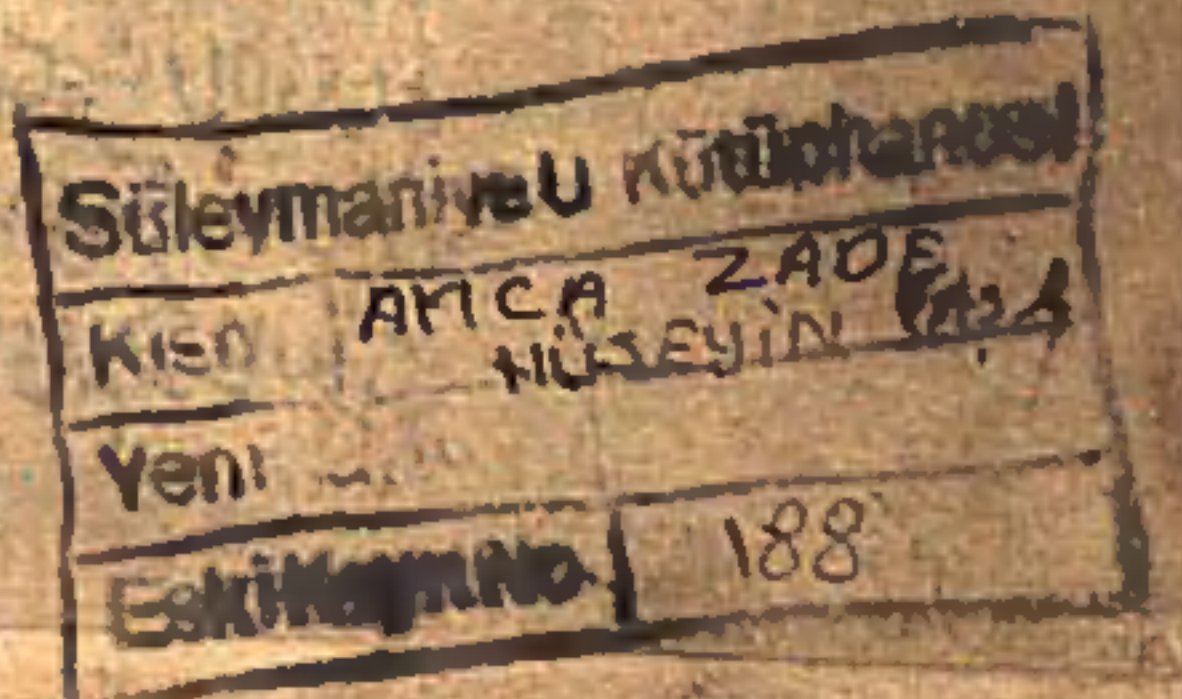 Süleymaniye U Kütüphanesi
Kısmı AMCA ZADE
HÜSEYİN PAŞA
Yeni
Eski Kayıt No. 188